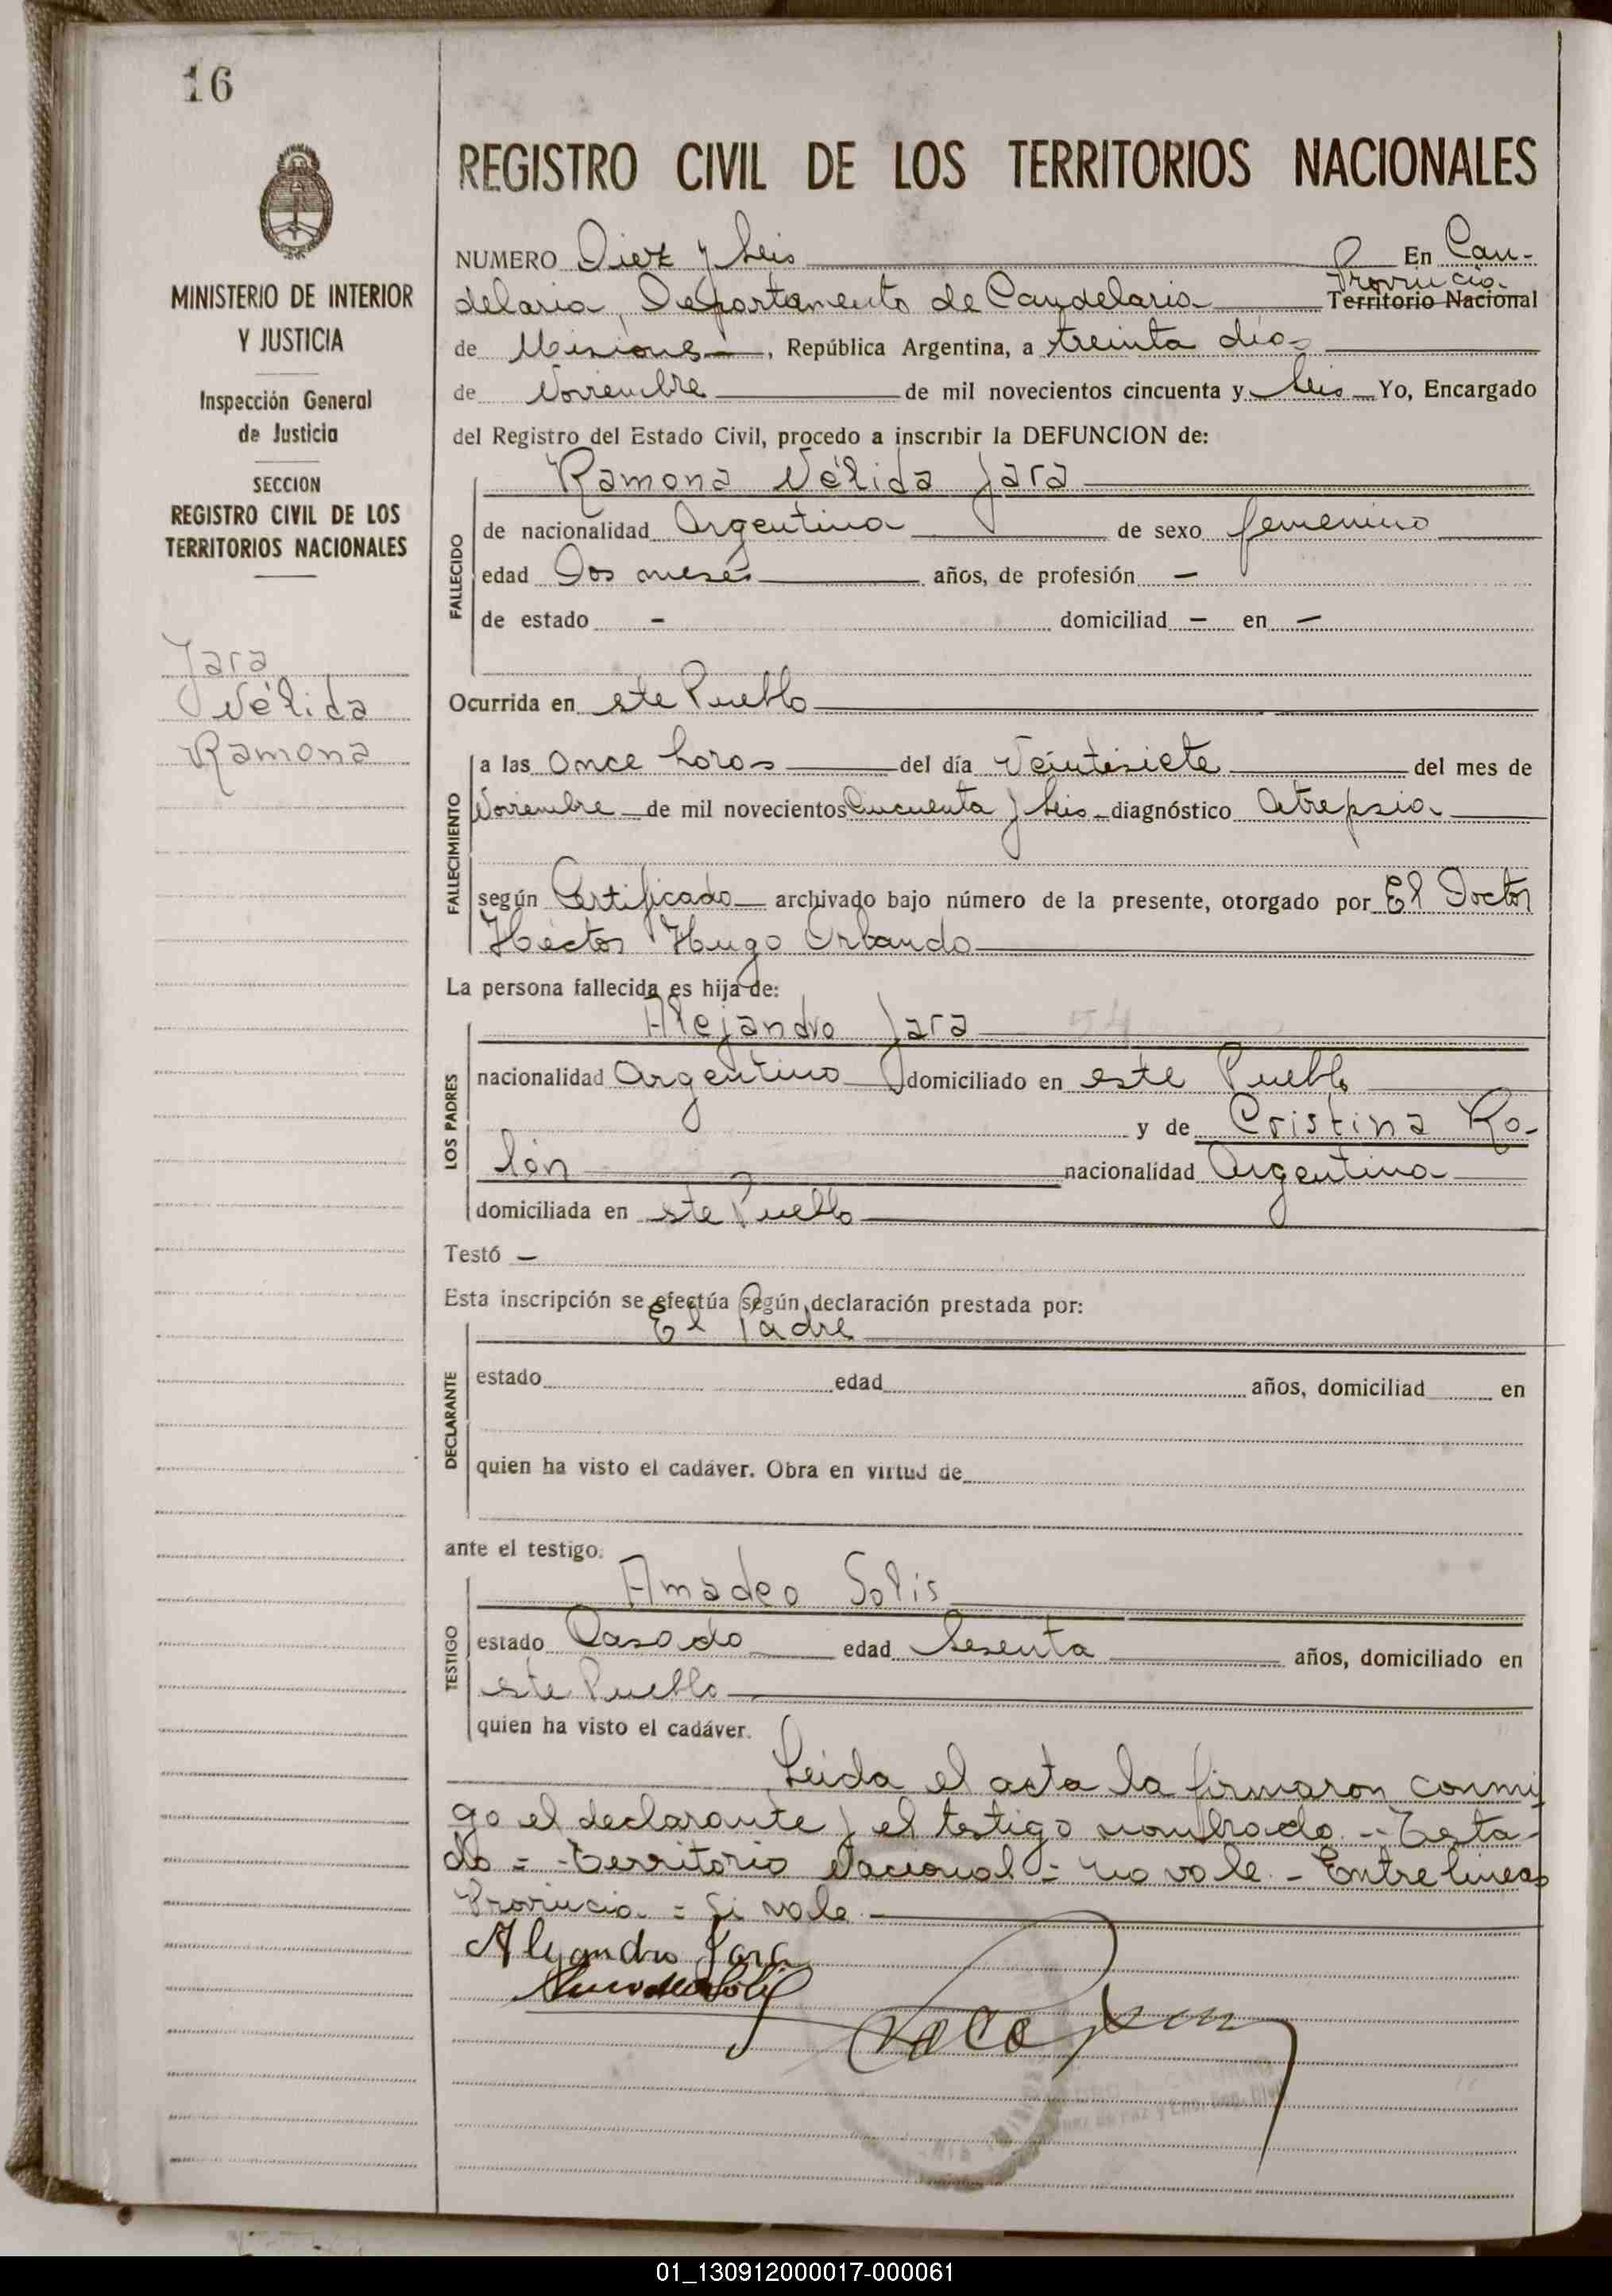 16
MINISTERIO DE INTERIOR
Y JUSTICIA
Inspección General
de Justicia
SECCION
REGISTRO CIVIL DE LOS
TERRITORIOS NACIONALES
Jara
Nélida
Ramona
REGISTRO CIVIL DE LOS TERRITORIOS NACIONALES
NUMERO Diez y seis En Can-
Provincia
delaria, Departamento de Candelaria Territorio Nacional
de Misiones, República Argentina, a treinta días
de Noviembre de mil novecientos cincuenta y seis Yo, Encargado
del Registro del Estado Civil, procedo a inscribir la DEFUNCION de:
Ramona Nélida Jara
FALLECIDO
de nacionalidad Argentina de sexo femenino
edad Dos meses años, de profesión —
de estado — domiciliad — en —
Ocurrida en este Pueblo
FALLECIMIENTO
a las once horas del día Veintisiete del mes de
Noviembre de mil novecientos cincuenta y seis diagnóstico Atrepsia
según Certificado archivado bajo número de la presente, otorgado por El Doctor
Héctor Hugo Orbando
La persona fallecida es hija de:
LOS PADRES
Alejandro Jara 54
nacionalidad Argentino domiciliado en este Pueblo
y de Cristina Ro-
lón nacionalidad Argentina
domiciliada en este Pueblo
Testó —
Esta inscripción se efectúa según declaración prestada por:
El Padre
DECLARANTE
estado edad años, domiciliad en
quien ha visto el cadáver. Obra en virtud de
ante el testigo:
Amadeo Solis
TESTIGO
estado Casado edad Sesenta años, domiciliado en
este Pueblo
quien ha visto el cadáver.
Leida el acta la firmaron conmi
go el declarante y el testigo nombrado. - Testa-
do = Territorio Nacional = no vale. - Entre lineas
Provincia. = Si vale. -
Alejandro Jara
Amadeo Solis
01_130912000017-000061